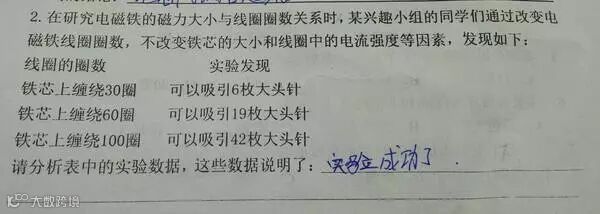 2. 在研究电磁铁的磁力大小与线圈圈数关系时,某兴趣小组的同学们通过改变电
磁铁线圈圈数,不改变铁芯的大小和线圈中的电流强度等因素,发现如下:
线圈的圈数 实验发现
铁芯上缠绕30圈 可以吸引6枚大头针
铁芯上缠绕60圈 可以吸引19枚大头针
铁芯上缠绕100圈 可以吸引42枚大头针
请分析表中的实验数据,这些数据说明了:实验成功了.
大数跨境